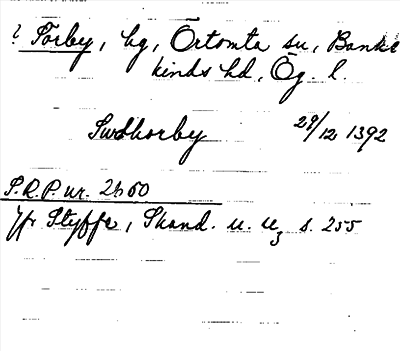 ? Torby, hg, Örtomta sn, Banke
kinds hd, Ög. l.
Swdhorby 29/12 1392
S.R.P. nr. 2660
Jfr Styffe, Skand. u. U3 s. 255